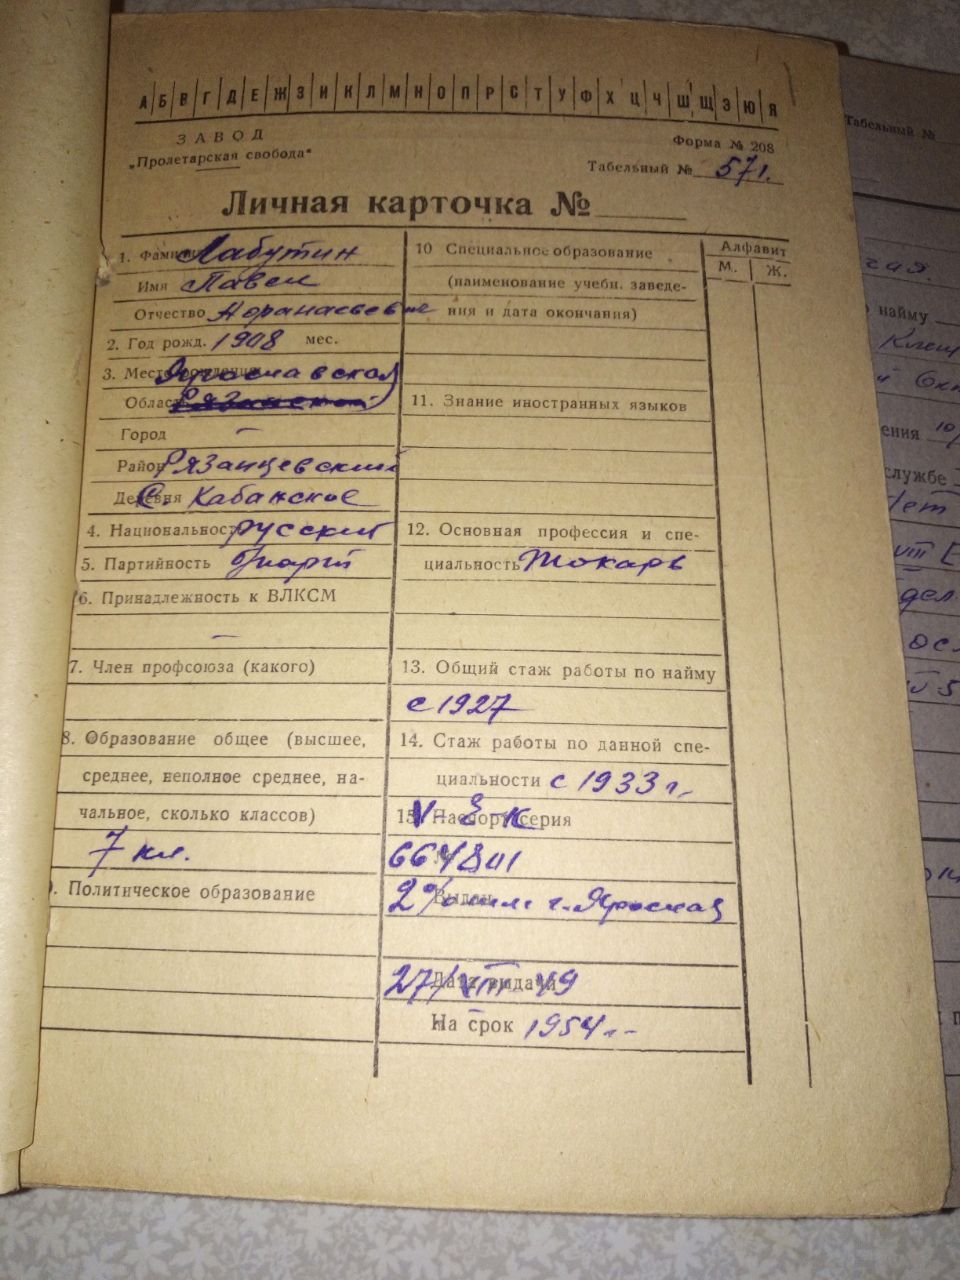 А Б В Г Д Е Ж З И К Л М Н О П Р С Т У Ф Х Ц Ч Ш Щ Э Ю Я
ЗАВОД
„Пролетарская свобода"
Форма № 208
Табельный № 571.
Личная карточка №
1. Фамилия Лабутин
Имя Павел
Отчество
2. Год рожд. 1908 мес.
3. Место рождения Ярославской
Область Рязанской
Город –
Район Рязанцевский
Деревня С. Кабанское
4. Национальность русский
5. Партийность
6. Принадлежность к ВЛКСМ
–
7. Член профсоюза (какого)
8. Образование общее (высшее,
среднее, неполное среднее, на-
чальное, сколько классов)
7 кл.
9. Политическое образование
10 Специальное образование
(наименование учебн. заведе-
ния и дата окончания)
11. Знание иностранных языков
12. Основная профессия и спе-
циальность Токарь
13. Общий стаж работы по найму
с 1927
14. Стаж работы по данной спе-
циальности с 1933 г.
15. Паспорт серия
№
Выдан
Дата выдачи 27/VIII-49
На срок 1954 г.
Алфавит
М. Ж.
Табельный №
найму
службе